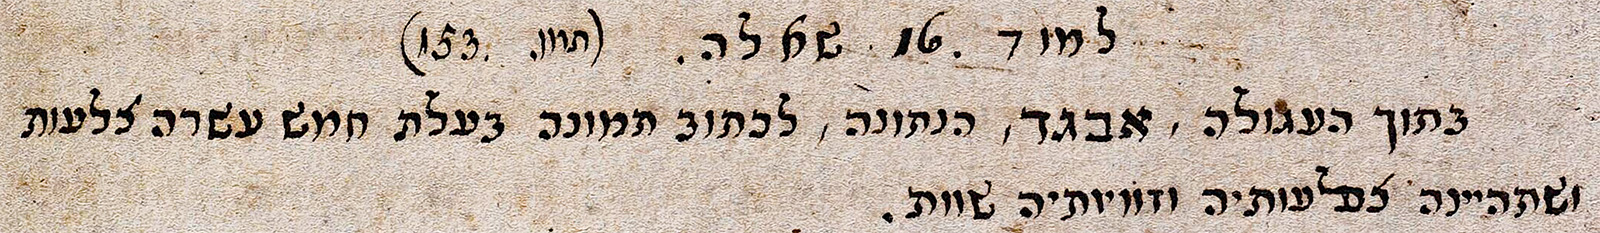 למוד .16 שאלה. (תמו. 153.)
בתוך העגולה, אבגד, הנתונה, לכתוב תמונה בעלת חמש עשרה צלעות
ושתהיינה צלעותיה וזוויותיה שוות.